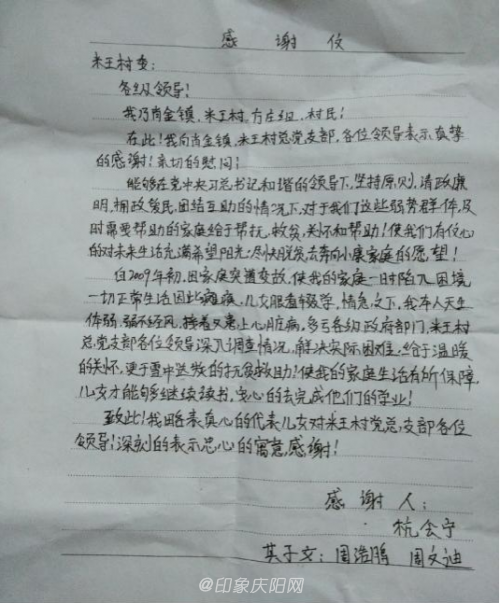 感谢信
米王村委:
各级领导!
我乃肖金镇,米王村,方左组,村民!
在此!我向肖金镇,米王党总支部,各位领导表示真挚
的感谢!亲切的慰问!
能够在党中央习总书记和谐的领导下,坚持原则,清政廉
明,拥政爱民,团结互助的情况下,对于我们这些弱势群体,及
时需要帮助的家庭给于帮扶,救贫,关怀和帮助!使我们有信心
的对未来生活充满希望阳光,尽快脱贫去奔向小康家庭的愿望!
自2009年初,因家庭突遭变故,使我的家庭一时陷入困境
一切正常生活因此瘫痪,儿女眼看辍学,情急之下,我本人天生
体弱,弱不经风,接着又患上心脏病,多亏各级政府部门,米王村
总党支部各位领导深入调查情况,解决实际困难,给于温暖
的关怀,更于雪中送炭的扶贫救助!使我的家庭生活有所保障,
儿女才能够继续读书,安心的去完成他们的学业!
致此!我田连表真心的代表儿女对米王村党总支部各位
领导!深刻的表示忠心的寓意,感谢!
感谢人:
杭会宁
其子女:周浩鹏 周文迪
@印象庆阳网